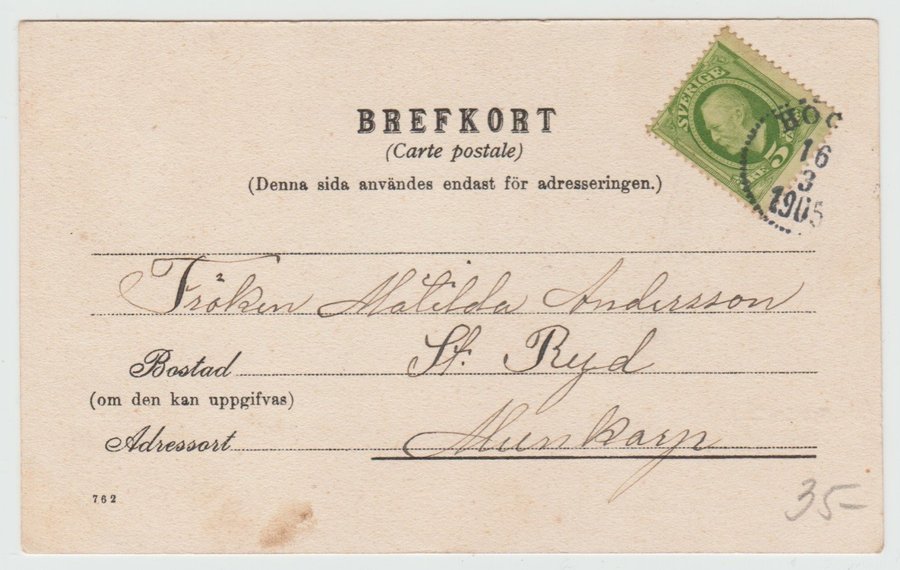 BREFKORT
(Carte postale)
(Denna sida användes endast för adresseringen.)
SVERIGE
5
16
3
1905
Fröken Matilda Andersson
Bostad St. Ryd
(om den kan uppgifvas)
Adressort Munkarp
762
35-